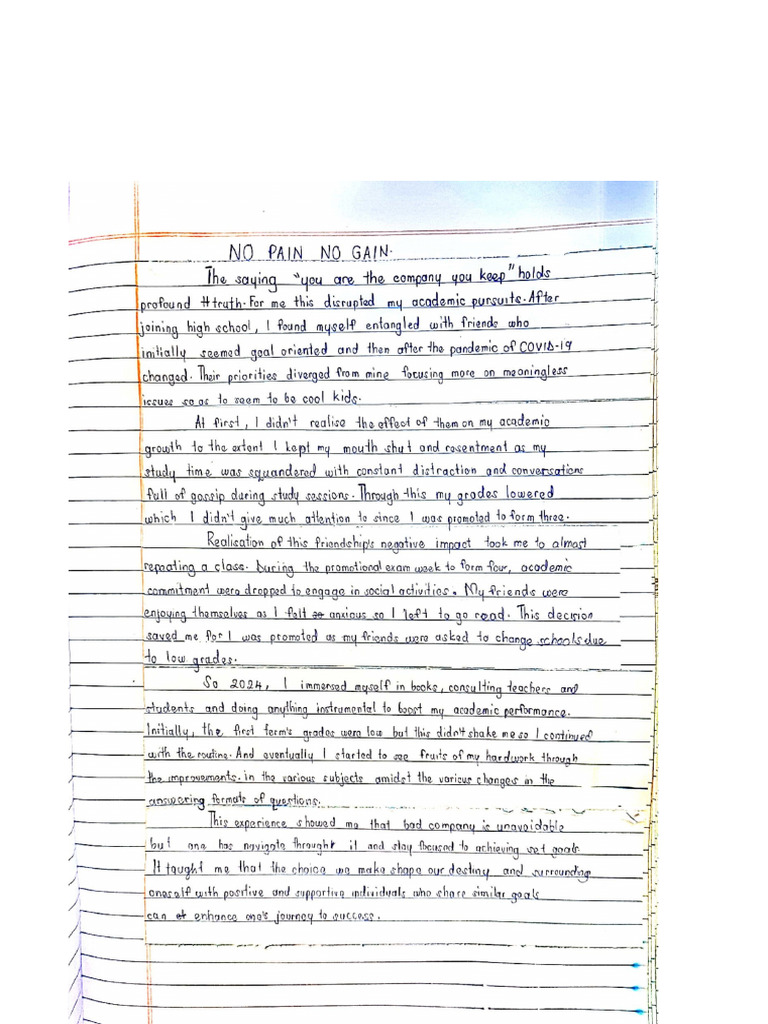 NO PAIN NO GAIN.
The saying "you are the company you keep" holds
profound truth. For me this disrupted my academic pursuits. After
joining high school, I found myself entangled with friends who
initially seemed goal oriented and then after the pandemic of COVID-19
changed. Their priorities diverged from mine focusing more on meaningless
issues so as to seem to be cool kids.
At first, I didn't realise the effect of them on my academic
growth to the extent I kept my mouth shut and resentment as my
study time was squandered with constant distraction and conversations
full of gossip during study sessions. Through this my grades lowered
which I didn't give much attention to since I was promoted to form three.
Realisation of this friendship's negative impact took me to almost
repeating a class. During the promotional exam week to form four, academic
commitment were dropped to engage in social activities. My friends were
enjoying themselves as I felt anxious so I left to go read. This decision
saved me for I was promoted as my friends were asked to change schools due
to low grades.
So 2024, I immersed myself in books, consulting teachers and
students and doing anything instrumental to boost my academic performance.
Initially, the first term's grades were low but this didn't shake me so I continued
with the routine. And eventually I started to see fruits of my hardwork through
the improvements. in the various subjects amidst the various changes in the
answering formats of questions.
This experience showed me that bad company is unavoidable
but one has navigate throught it and stay focused to achieving set goals
It taught me that the choice we make shape our destiny and surrounding
oneself with positive and supportive individuals who share similar goals
can enhance one's journey to success.